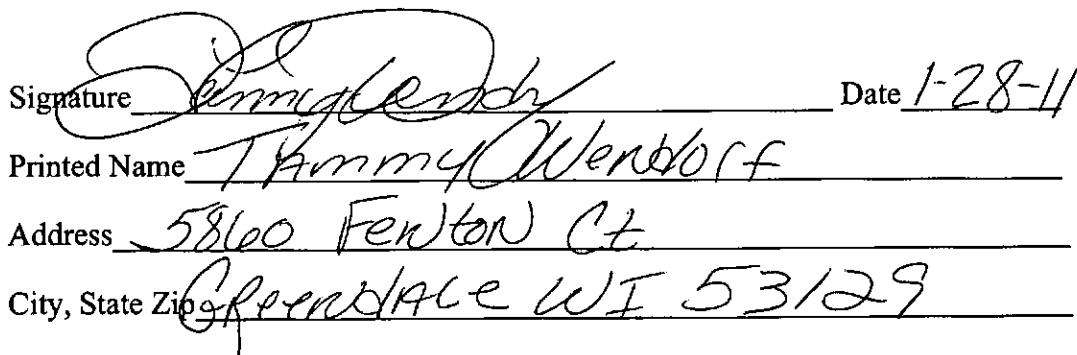 Signature Date 1-28-11
Printed Name Tammy Wendorf
Address 5860 Fenton Ct
City, State Zip Greendale WI 53129